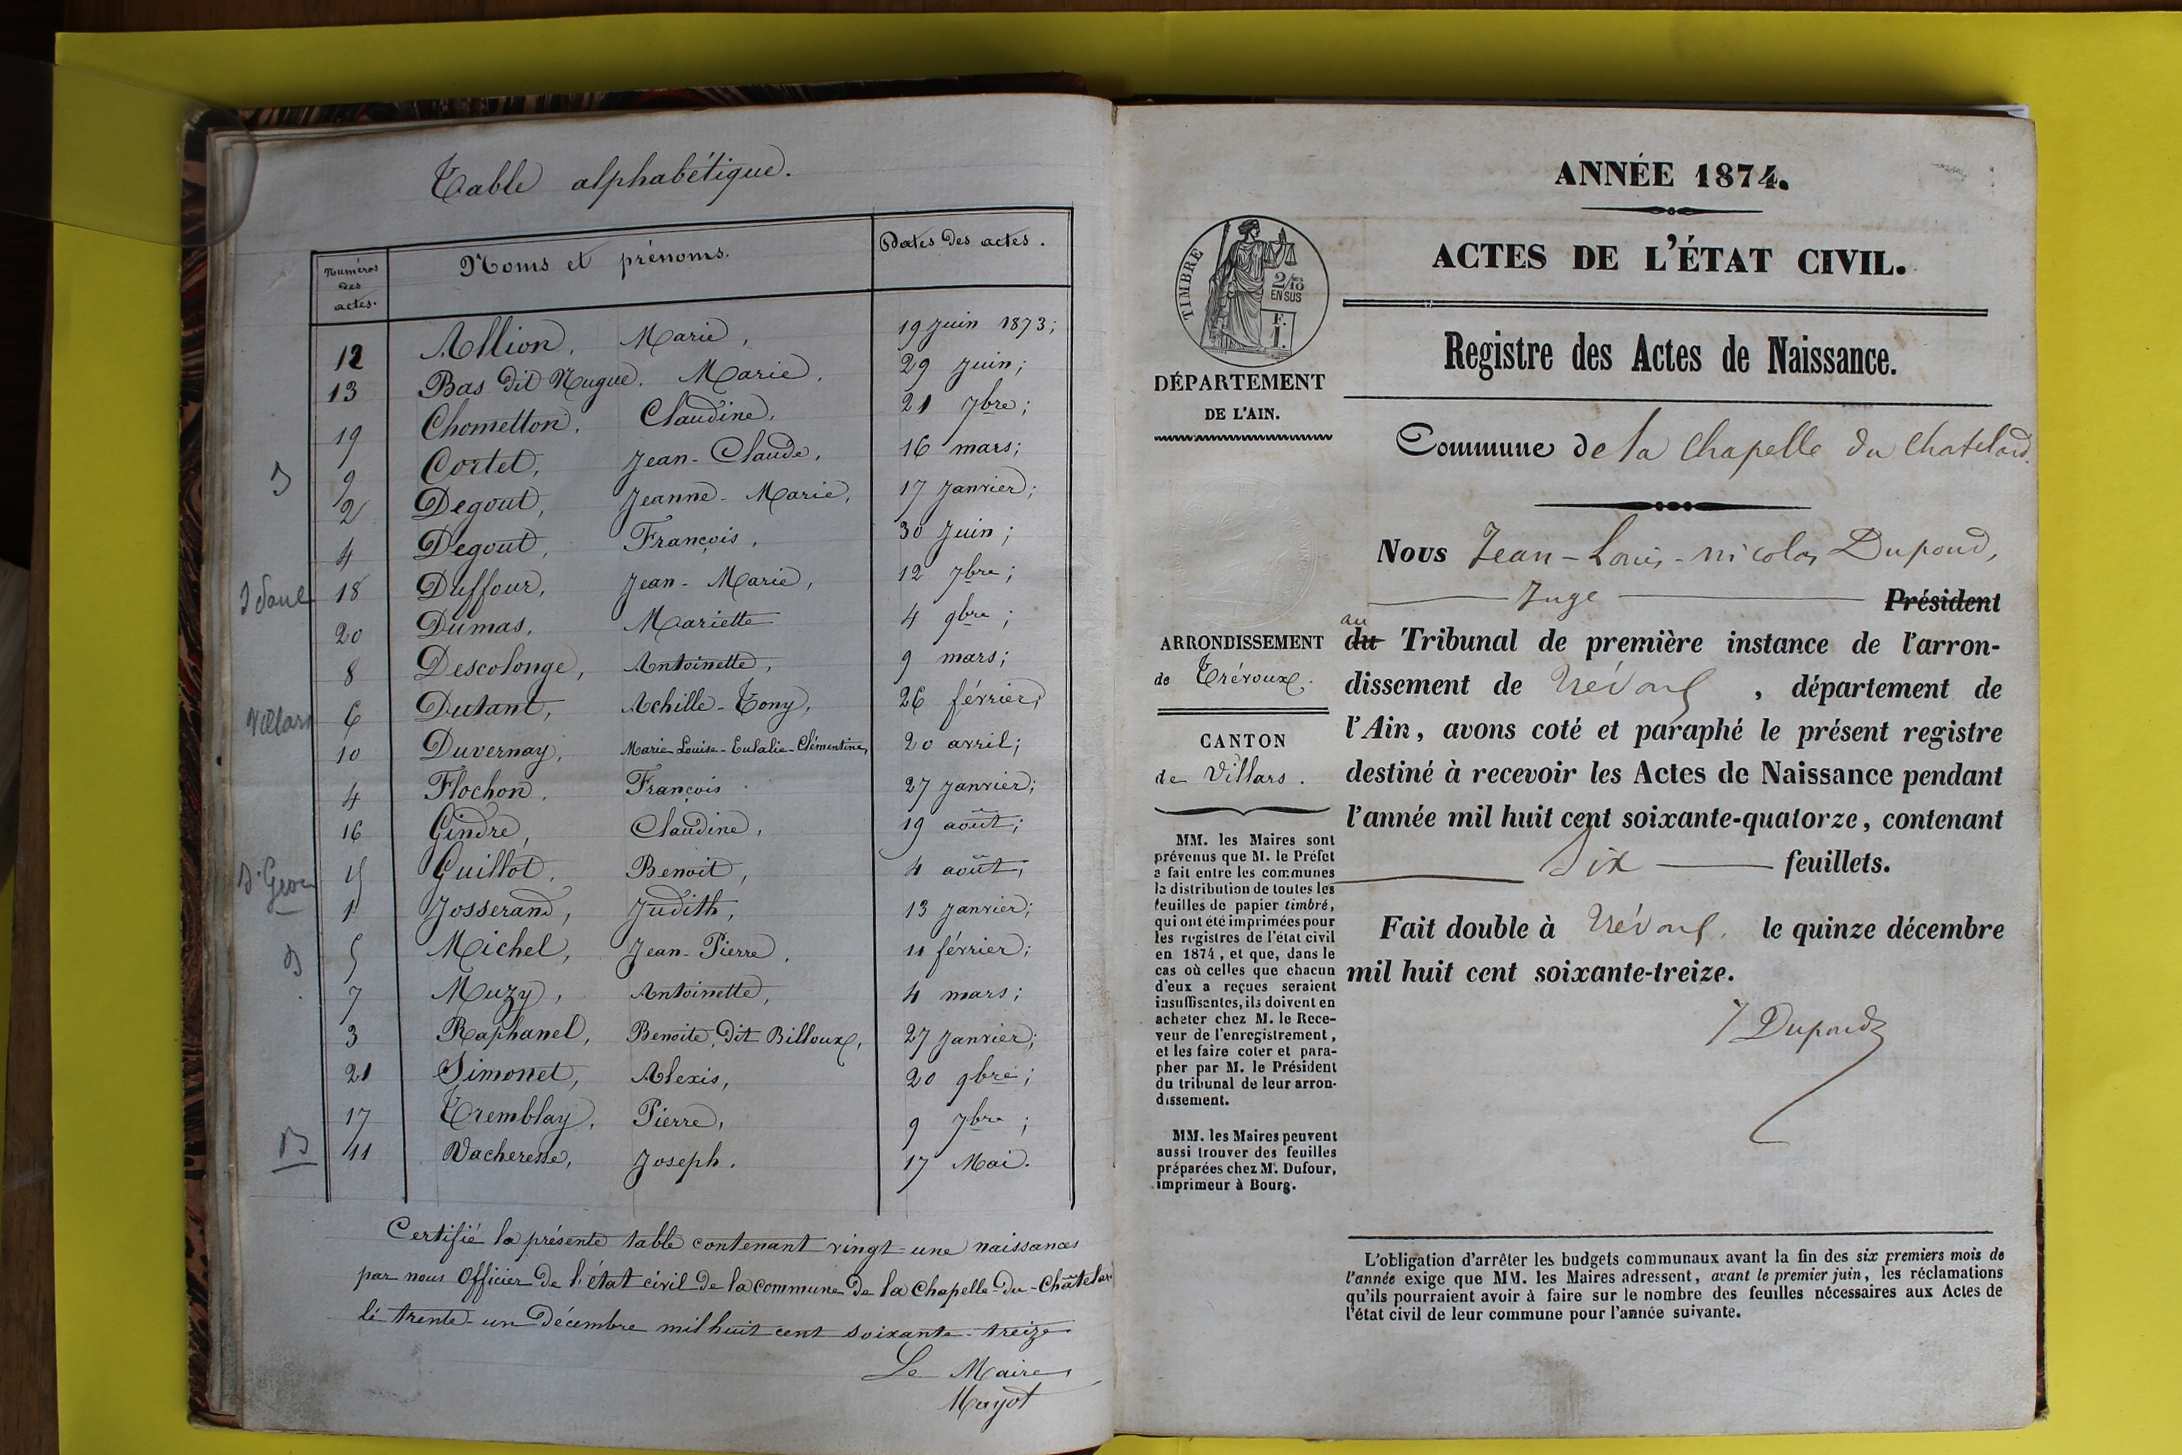 Table alphabétique.
Numéros des actes. Noms et prénoms. Dates des actes.
12 Allion, Marie, 19 Juin 1873;
13 Bas dit Nugue, Marie, 29 Juin;
19 Chometton, Claudine, 21 7bre;
9 Cortet, Jean-Claude, 16 mars;
2 Degout, Jeanne-Marie, 17 Janvier;
4 Degout, François, 30 Juin;
18 Duffour, Jean-Marie, 12 7bre;
20 Dumas, Mariette 4 9bre;
8 Descolonge, Antoinette, 9 mars;
Villars 6 Dutant, Achille-Tony, 26 février;
10 Duvernay, Marie Louise-Eulalie-Clémentine, 20 avril;
4 Flochon, François 27 Janvier;
16 Gindre, Claudine, 19 août;
Guillot, Benoit, 4 août;
1 Josserand, Judith, 13 Janvier;
5 Michel, Jean-Pierre, 11 février;
7 Muzy, Antoinette, 4 mars;
3 Raphanel, Benoite, dit Billoux, 27 Janvier;
21 Simonet, Alexis, 20 9bre;
17 Tremblay, Pierre, 9 7bre;
B 11 Vacheresse, Joseph. 17 Mai.
Certifié la présente table contenant vingt-une naissances
par nous Officier de l'état civil de la commune de la Chapelle-du-Châtelar
le trente-un Décembre mil huit cent soixante-treize
Le Maire
Mayot
ANNÉE 1874.
ACTES DE L'ÉTAT CIVIL.
Registre des Actes de Naissance.
TIMBRE
2/10 EN SUS
F. 1.
DÉPARTEMENT
DE L'AIN.
Commune de la Chapelle du Chatelard
Nous Jean-Louis-Nicolas Dupond,
Juge Président
au du Tribunal de première instance de l'arron-
dissement de Trévoux, département de
l'Ain, avons coté et paraphé le présent registre
destiné à recevoir les Actes de Naissance pendant
l'année mil huit cent soixante-quatorze, contenant
Six feuillets.
Fait double à Trévoux, le quinze décembre
mil huit cent soixante-treize.
J Dupond
ARRONDISSEMENT
de Trévoux.
CANTON
de Villars.
MM. les Maires sont
prévenus que M. le Préfet
a fait entre les communes
la distribution de toutes les
feuilles de papier timbré,
qui ont été imprimées pour
les registres de l'état civil
en 1874, et que, dans le
cas où celles que chacun
d'eux a reçues seraient
insuffisantes, ils doivent en
acheter chez M. le Rece-
veur de l'enregistrement,
et les faire coter et para-
pher par M. le Président
du tribunal de leur arron-
dissement.
MM. les Maires peuvent
aussi trouver des feuilles
préparées chez Mr. Dufour,
imprimeur à Bourg.
L'obligation d'arrêter les budgets communaux avant la fin des six premiers mois de
l'année exige que MM. les Maires adressent, avant le premier juin, les réclamations
qu'ils pourraient avoir à faire sur le nombre des feuilles nécessaires aux Actes de
l'état civil de leur commune pour l'année suivante.